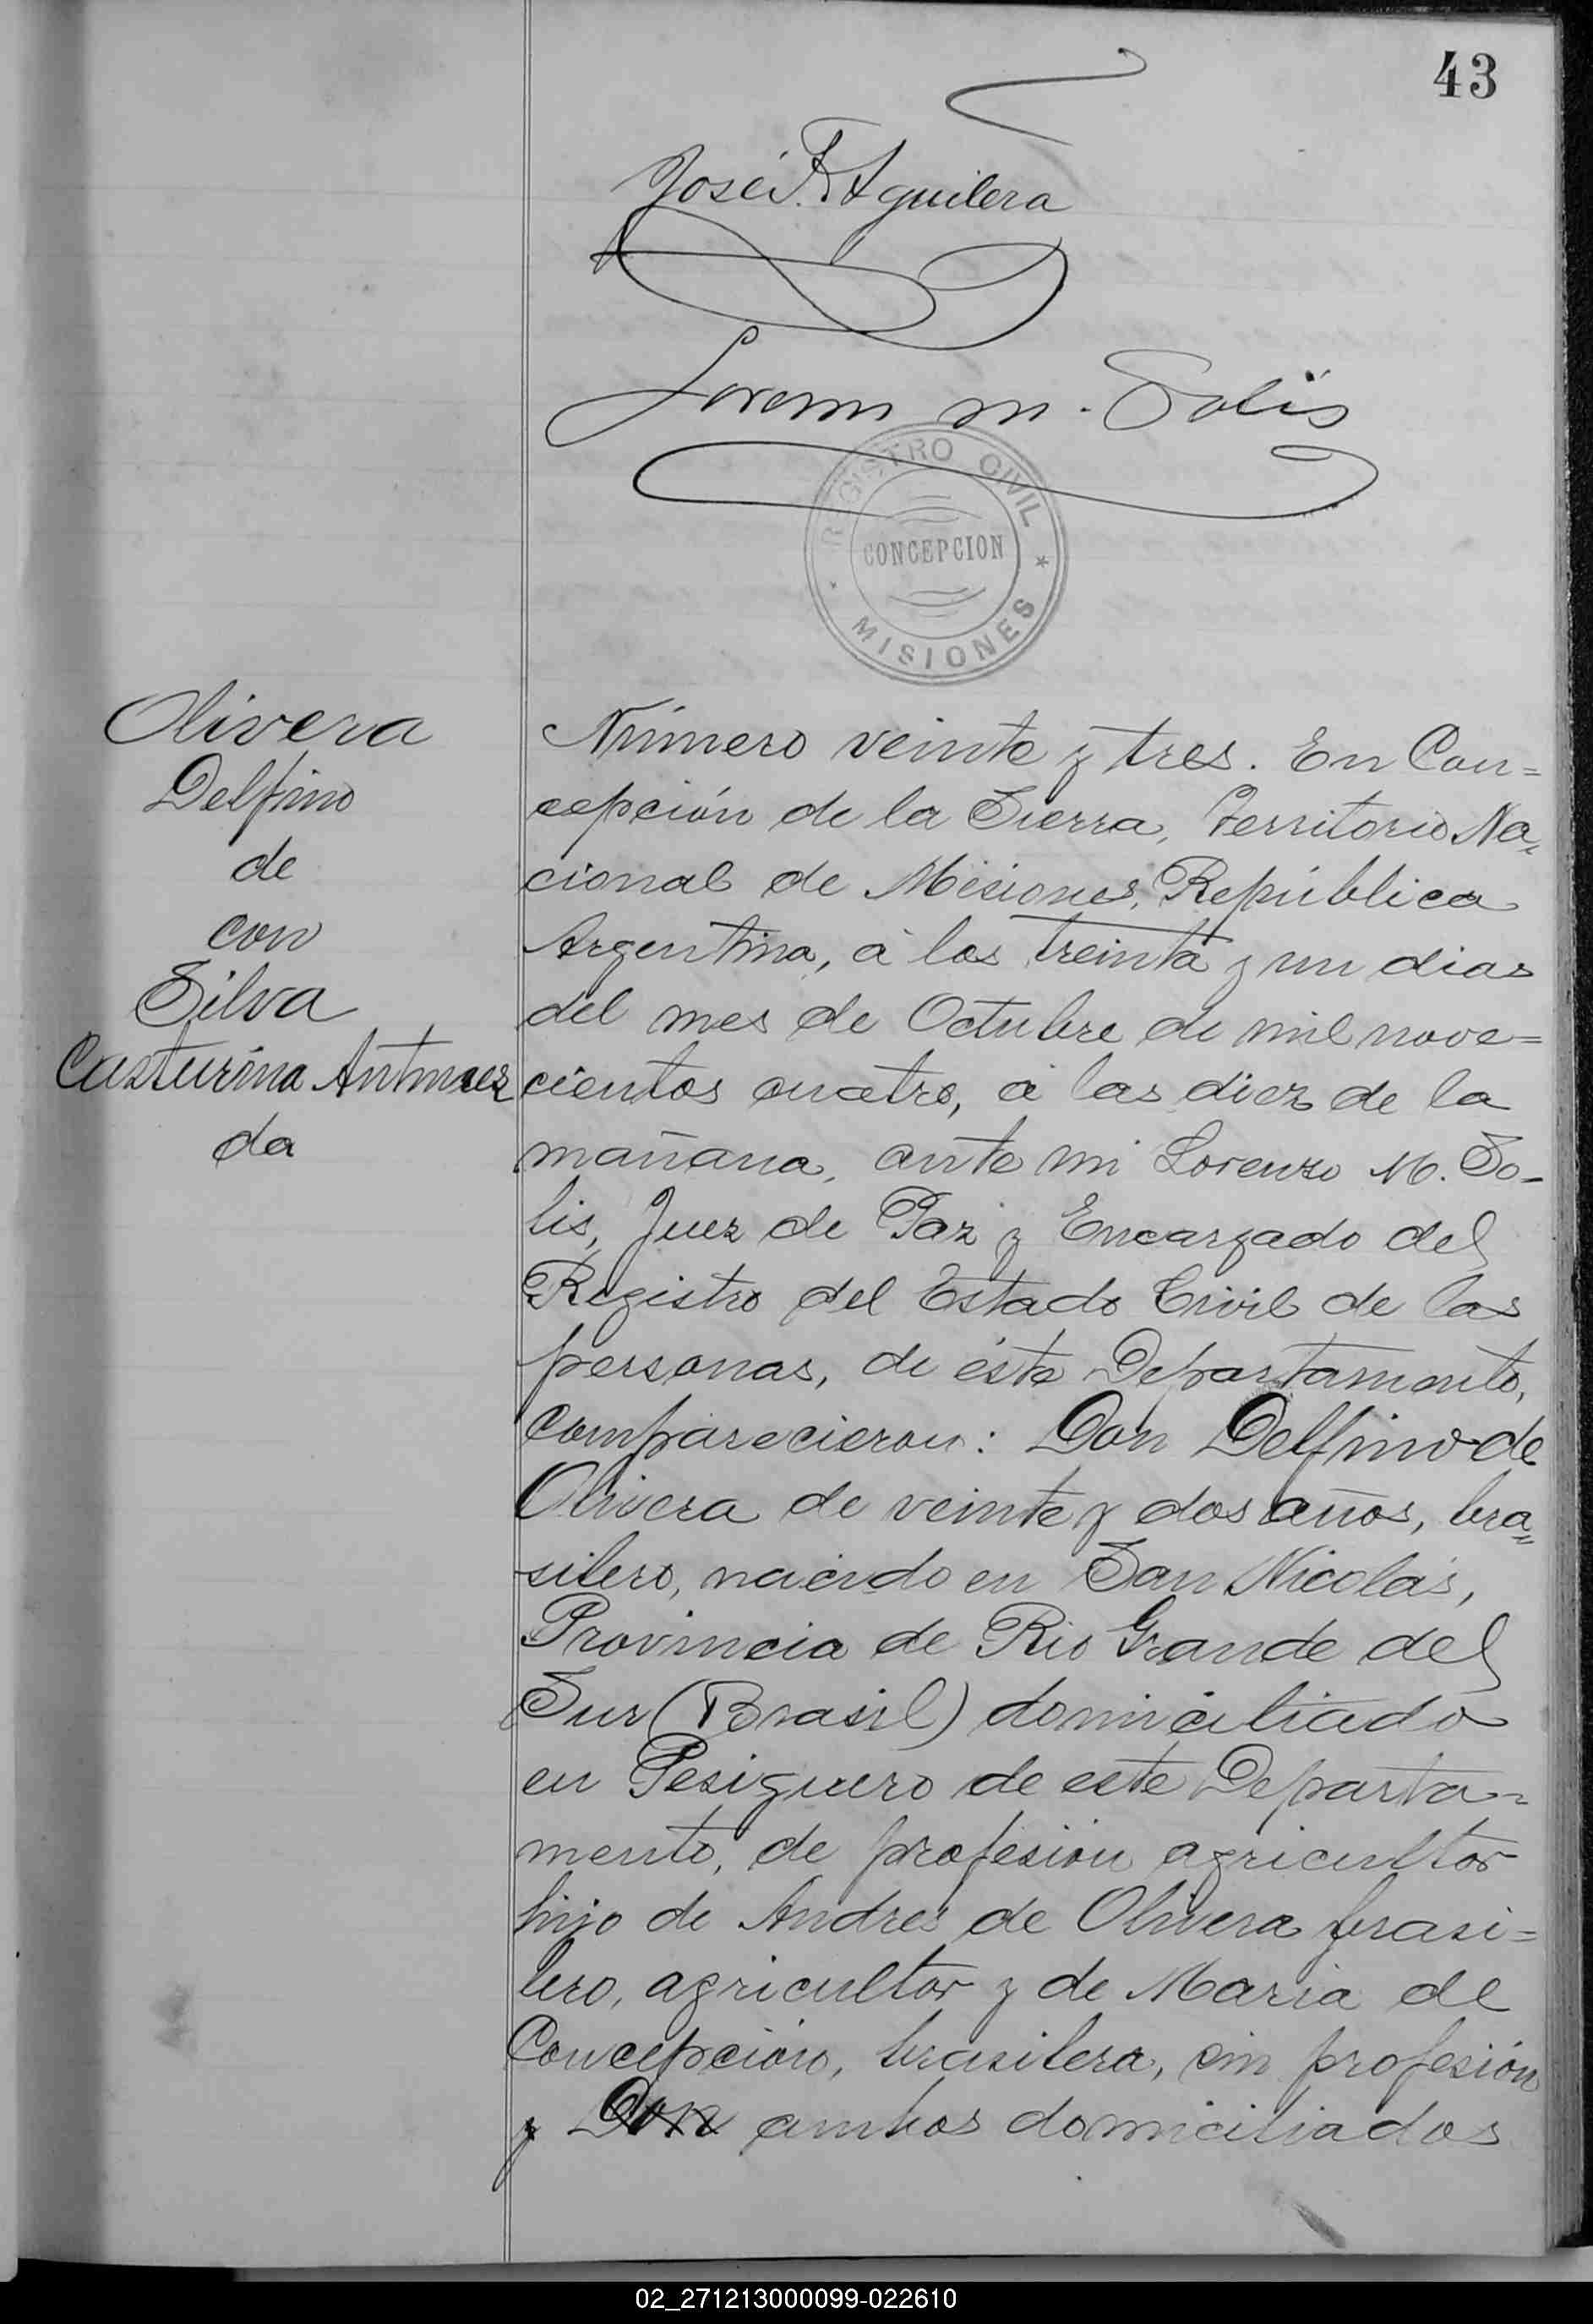 43
José F. Aguilera
Lorenzo M. Solis
REGISTRO CIVIL
CONCEPCION
MISIONES
Olivera
Delfino
de
con
Silva
Antunez
da
Número veinte y tres. En Con=
cepción de la Sierra, Territorio Na=
cional de Misiones, República
Argentina, á los treinta y un dias
del mes de Octubre de mil nove=
cientos cuatro, á las diez de la
mañana, ante mi Lorenzo M. So-
lis, Juez de Paz y Encargado del
Registro del Estado Civil de las
personas, de éste Departamento,
comparecieron: Don Delfino de
Olivera de veinte y dos años, bra=
silero, nacido en San Nicolás,
Provincia de Rio Grande del
Sur (Brasil) domiciliado
en Pesiguero de este Departa=
mento, de profesión agricultor
hijo de Andres de Olivera brasi=
lero, agricultor y de Maria de
Concepción, brasilera, sin profesión
y Don ambos domiciliados
02_271213000099-022610